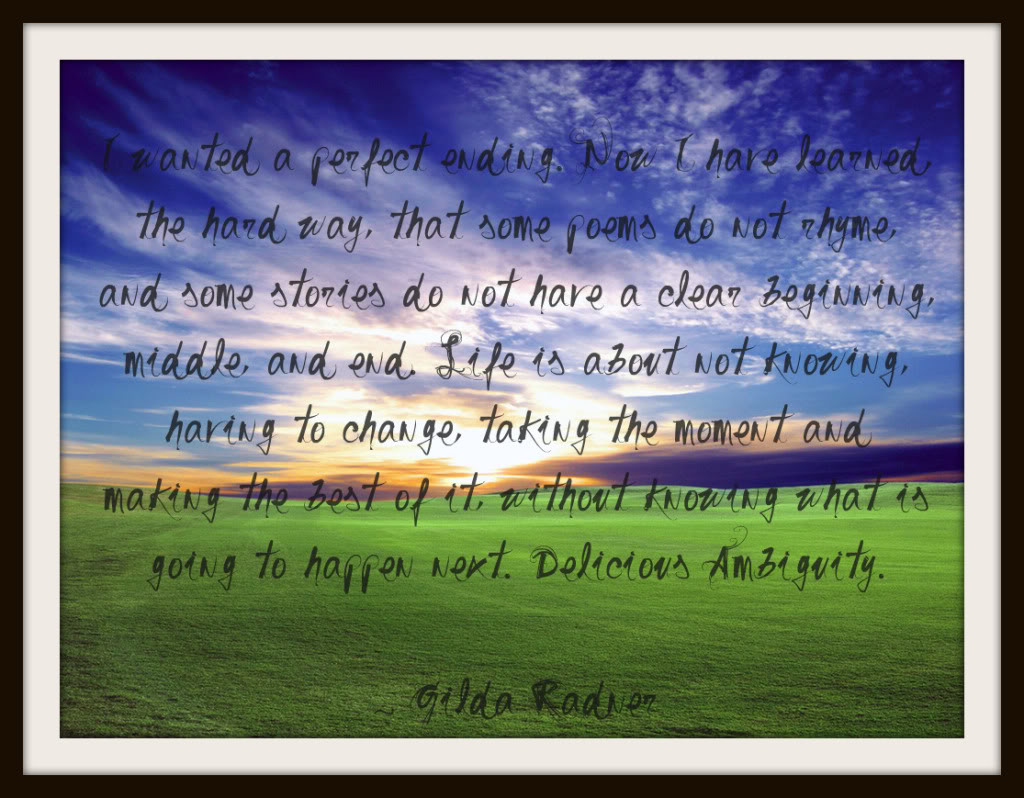 I wanted a perfect ending. Now I have learned,
the hard way, that some poems do not rhyme,
and some stories do not have a clear beginning,
middle, and end. Life is about not knowing,
having to change, taking the moment and
making the best of it, without knowing what is
going to happen next. Delicious Ambiguity.
~ Gilda Radner